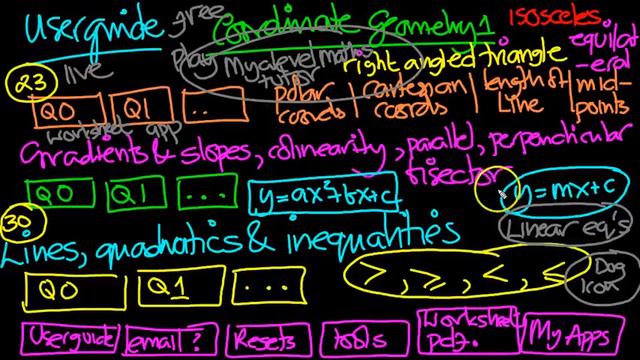 Userguide free Coordinate Geometry 1 isosceles
live Play My alevel maths tutor right angled triangle equilateral
23
Q0 Q1 .. polar coords cartesian coords length of Line mid-points
worksheet app
Gradients & slopes, colinearity, parallel, perpendicular bisector
Q0 Q1 ... y=ax²+bx+c y=mx+c
30
Linear eq's
Lines, quadratics & inequalities
Q0 Q1 ... >, ≥, <, ≤ Dog icon
Userguide email? Resets tools worksheet pdf. My Apps